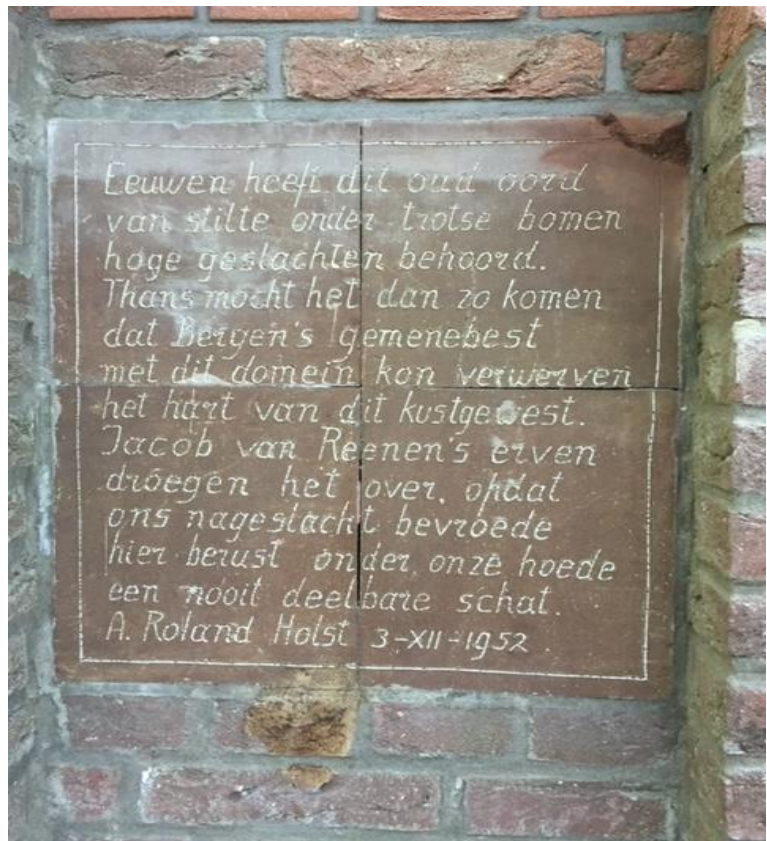 Eeuwen heeft dit oud oord
van stilte onder trotse bomen
hoge geslachten behoord.
Thans mocht het dan zo komen
dat Bergen's gemenebest
met dit domein kon verwerven
het hart van dit kustgewest.
Jacob van Reenen's erven
droegen het over, opdat
ons nageslacht bevroede
hier berust onder onze hoede
een nooit deelbare schat.
A. Roland Holst 3-XII-1952